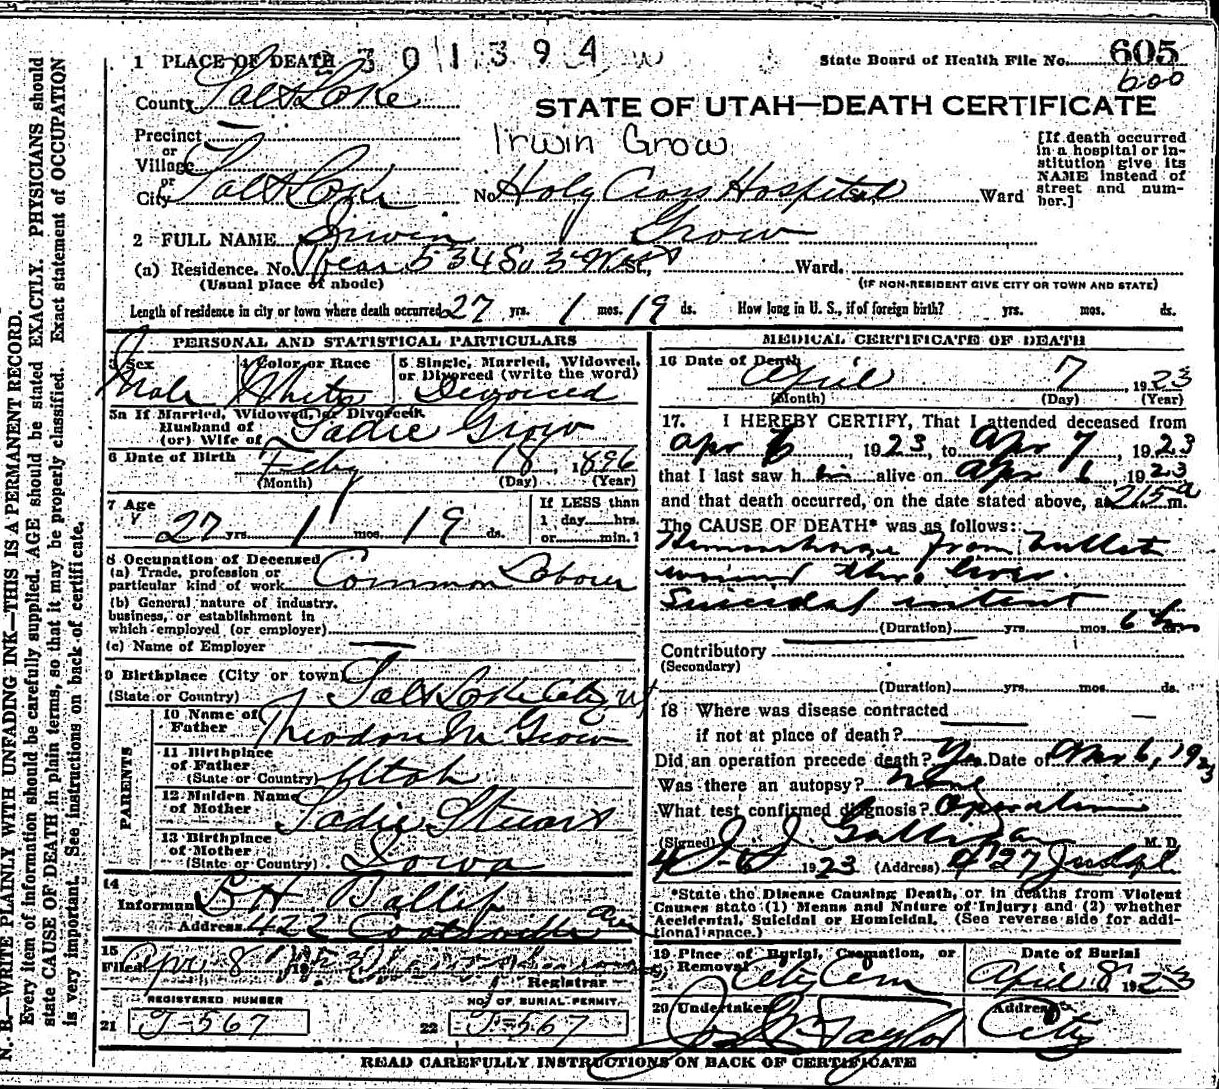 1 PLACE OF DEATH 301394
State Board of Health File No. 605
600
County Salt Lake
STATE OF UTAH—DEATH CERTIFICATE
Precinct
or
Village
or
City Salt Lake
Irwin Grow
No. Holy Cross Hospital Ward
[If death occurred
in a hospital or in-
stitution give its
NAME instead of
street and num-
ber.]
2 FULL NAME Irwin Grow
(a) Residence. No. Rear 534 So 3rd West St., Ward.
(Usual place of abode)
(IF NON-RESIDENT GIVE CITY OR TOWN AND STATE)
Length of residence in city or town where death occurred 27 yrs. 1 mos. 19 ds. How long in U. S., if of foreign birth? yrs. mos. ds.
PERSONAL AND STATISTICAL PARTICULARS
3 Sex
Male
4 Color or Race
White
5 Single, Married, Widowed,
or Divorced (write the word)
Divorced
5a If Married, Widowed, or Divorced
Husband of
(or) Wife of Sadie Grow
6 Date of Birth Feby 18, 1896
(Month) (Day) (Year)
7 Age
27 yrs. 1 mos. 19 ds.
If LESS than
1 day hrs.
or min.?
8 Occupation of Deceased
(a) Trade, profession or
particular kind of work Common Laborer
(b) General nature of industry,
business, or establishment in
which employed (or employer)
(c) Name of Employer
9 Birthplace (City or town)
(State or Country) Salt Lake City Ut
PARENTS
10 Name of
Father Theodore M Grow
11 Birthplace
of Father
(State or Country) Utah
12 Maiden Name
of Mother Sadie Stuart
13 Birthplace
of Mother
(State or Country) Iowa
14
Informant B H
Address 422 Ave
15
Filed Apr 8 1923
Registrar
REGISTERED NUMBER
21 J-567
NO. OF BURIAL PERMIT
22 J-567
MEDICAL CERTIFICATE OF DEATH
16 Date of Death
April 7, 1923
(Month) (Day) (Year)
17. I HEREBY CERTIFY, That I attended deceased from
Apr 6, 1923, to Apr 7, 1923
that I last saw him alive on Apr 6, 1923
and that death occurred, on the date stated above, at 215 a m.
The CAUSE OF DEATH* was as follows:
Hemmorhage from bullet
wound thru liver
Suicidal intent
(Duration) yrs. mos. 6 hrs
Contributory
(Secondary)
(Duration) yrs. mos. ds.
18 Where was disease contracted
if not at place of death?
Did an operation precede death? Yes Date of Apr 6, 1923
Was there an autopsy? None
What test confirmed diagnosis? Operation
(Signed) J J Galligan M. D.
4-6 1923 (Address)
*State the Disease Causing Death, or in deaths from Violent
Causes state (1) Means and Nature of Injury; and (2) whether
Accidental, Suicidal or Homicidal. (See reverse side for addi-
tional space.)
19 Place of Burial, Cremation, or
Removal
City Cem
Date of Burial
April 8 1923
20 Undertaker
Jos Wm Taylor
Address
City
READ CAREFULLY INSTRUCTIONS ON BACK OF CERTIFICATE
N. B.—WRITE PLAINLY WITH UNFADING INK—THIS IS A PERMANENT RECORD.
Every item of information should be carefully supplied. AGE should be stated EXACTLY. PHYSICIANS should
state CAUSE OF DEATH in plain terms, so that it may be properly classified. Exact statement of OCCUPATION
is very important. See instructions on back of certificate.